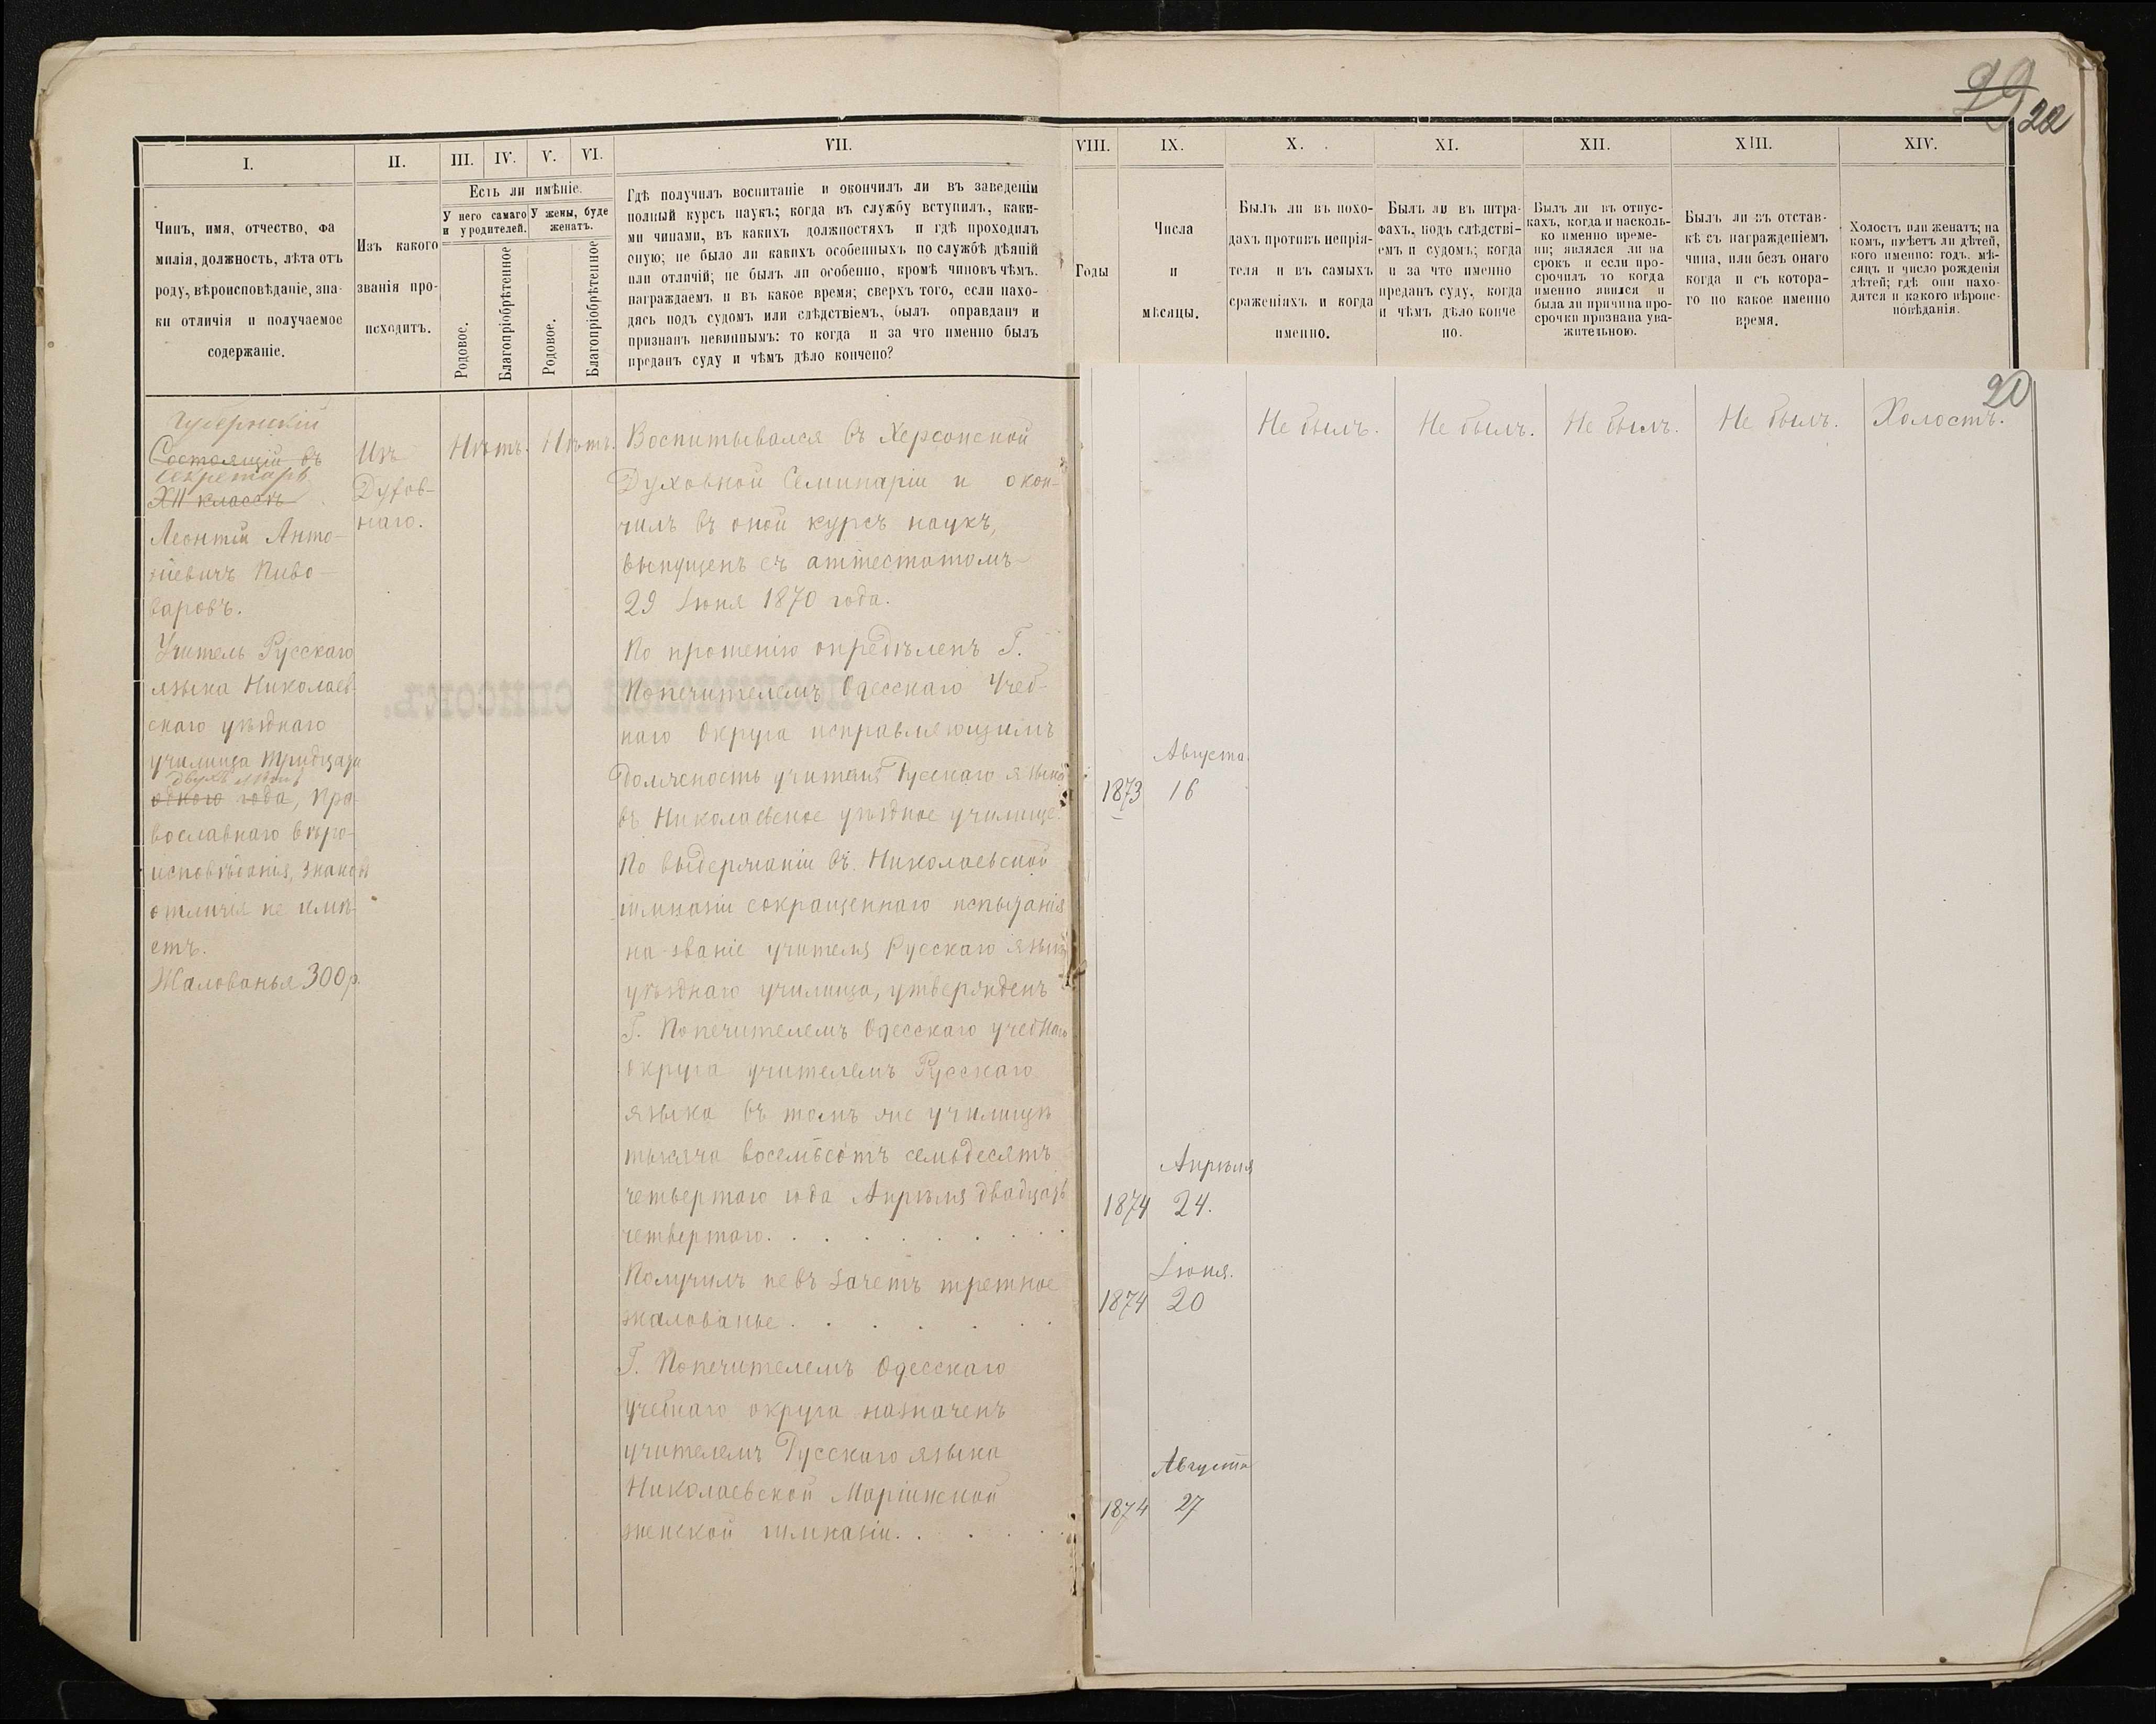 29
22
I.
II.
III.
IV.
V.
VI.
VII.
VIII.
IX.
X.
XI.
XII.
XIII.
XIV.
Чинъ, имя, отчество, фа
милія, должность, лѣта отъ
роду, вѣроисповѣданіе, зна-
ки отличія и получаемое
содержаніе.
Изъ какого
званія про-
исходитъ.
Есть ли имѣніе.
У него самаго
и у родителей.
У жены, буде
женатъ.
Родовое.
Благопріобрѣтенное
Родовое.
Благопріобрѣтенное
Гдѣ получилъ воспитаніе и окончилъ ли въ заведеніи
полный курсъ наукъ; когда въ службу вступилъ, каки-
ми чинами, въ какихъ должностяхъ и гдѣ проходилъ
оную; не было ли какихъ особенныхъ по службѣ дѣяній
или отличій; не былъ ли особенно, кромѣ чиновъ чѣмъ.
награждаемъ и въ какое время; сверхъ того, если нахо-
дясь подъ судомъ или слѣдствіемъ, былъ оправданъ и
признанъ невиннымъ: то когда и за что именно былъ
преданъ суду и чѣмъ дѣло кончено?
Годы
Числа
и
мѣсяцы.
Былъ ли въ похо-
дахъ противъ непрія-
теля и въ самыхъ
сраженіяхъ и когда
именно.
Былъ ли въ штра-
фахъ, подъ слѣдстві-
емъ и судомъ; когда
и за что именно
преданъ суду, когда
и чѣмъ дѣло конче
но.
Былъ ли въ отпус-
кахъ, когда и насколь-
ко именно време-
ни; являлся ли на
срокъ и если про-
срочилъ то когда
именно явился и
была ли причина про-
срочки признана ува-
жительною.
Былъ ли въ отстав-
кѣ съ награжденіемъ
чина, или безъ онаго
когда и съ котора-
го по какое именно
время.
Холостъ или женатъ; на
комъ, имѣетъ ли дѣтей,
кого именно: годъ, мѣ-
сяцъ и число рожденія
дѣтей; гдѣ они нахо-
дятся и какого вѣроис-
повѣданія.
Губернскій
Состоящій въ
секретарь
XII классѣ
Леонтій Анто-
ніевичъ Пиво-
варовъ.
Учитель Русскаго
языка Николаев-
скаго уѣзднаго
училища тридцати
двухъ лѣтъ
одного года, пра-
вославнаго вѣро-
исповѣданія, знаковъ
отличія не имѣ-
етъ.
Жалованья 300 р.
Изъ
Духов-
наго.
Нѣтъ.
Нѣтъ.
Воспитывался въ Херсонской
Духовной Семинаріи и окон-
чилъ въ оной курсъ наукъ,
выпущенъ съ аттестатомъ
29 Іюня 1870 года.
По прошенію опредѣленъ Г.
Попечителемъ Одесскаго Учеб-
наго Округа исправляющимъ
должность учителя Русскаго языка
въ Николаевское уѣздное училище.
По выдержаніи въ Николаевской
гимназіи сокращеннаго испытанія
на званіе учителя Русскаго языка
уѣзднаго училища, утвержденъ
Г. Попечителемъ Одесскаго учебнаго
округа учителемъ Русскаго
языка въ томъ же училищѣ
тысяча восемьсотъ семьдесятъ
четвертаго года Апрѣля двадцать
четвертаго.
Получилъ не въ зачетъ третное
жалованье.
Г. Попечителемъ Одесскаго
учебнаго округа назначенъ
учителемъ Русскаго языка
Николаевской Маріинской
женской гимназіи.
Августа
1873 16
Апрѣля
1874 24.
Іюня.
1874 20
Августа
1874 27
20
Не былъ.
Не былъ.
Не былъ.
Не былъ.
Холостъ.